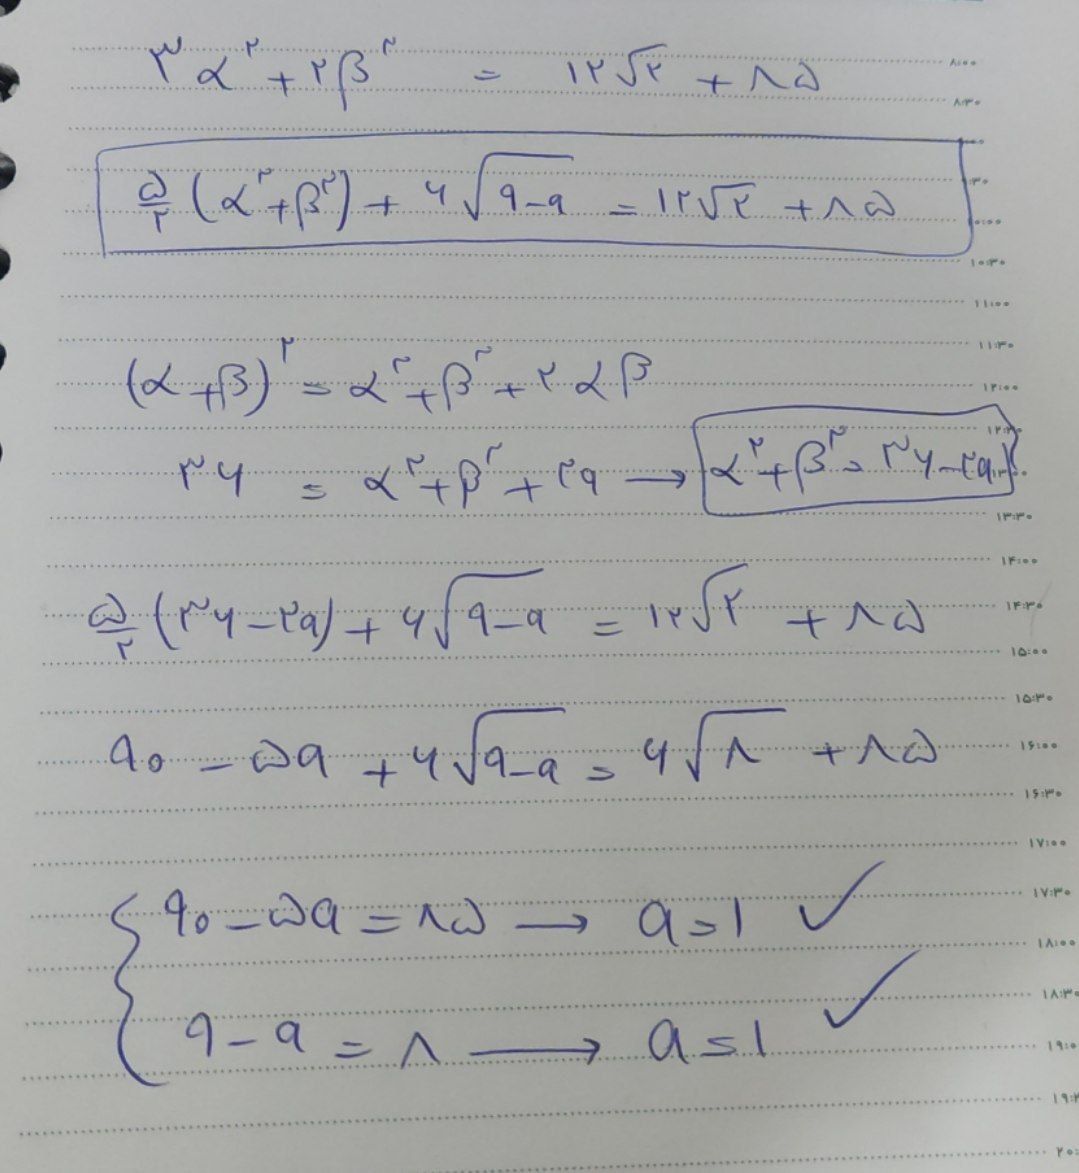 ۳α^۲ + ۲β^۲ = ۱۲√۲ + ۸۵
۵/۲ (α^۲ + β^۲) + ۶√(۹-a) = ۱۲√۲ + ۸۵
(α + β)^۲ = α^۲ + β^۲ + ۲αβ
۳۶ = α^۲ + β^۲ + ۲a → α^۲ + β^۲ = ۳۶ - ۲a
۵/۲ (۳۶ - ۲a) + ۶√(۹-a) = ۱۲√۲ + ۸۵
۹۰ - ۵a + ۶√(۹-a) = ۶√۸ + ۸۵
{ ۹۰ - ۵a = ۸۵ → a = ۱ ✓
۹ - a = ۸ → a = ۱ ✓
۸:۰۰
۸:۳۰
۱۰:۳۰
۱۱:۰۰
۱۱:۳۰
۱۲:۰۰
۱۳:۳۰
۱۴:۰۰
۱۴:۳۰
۱۵:۰۰
۱۵:۳۰
۱۶:۰۰
۱۶:۳۰
۱۷:۰۰
۱۷:۳۰
۱۸:۰۰
۱۸:۳۰